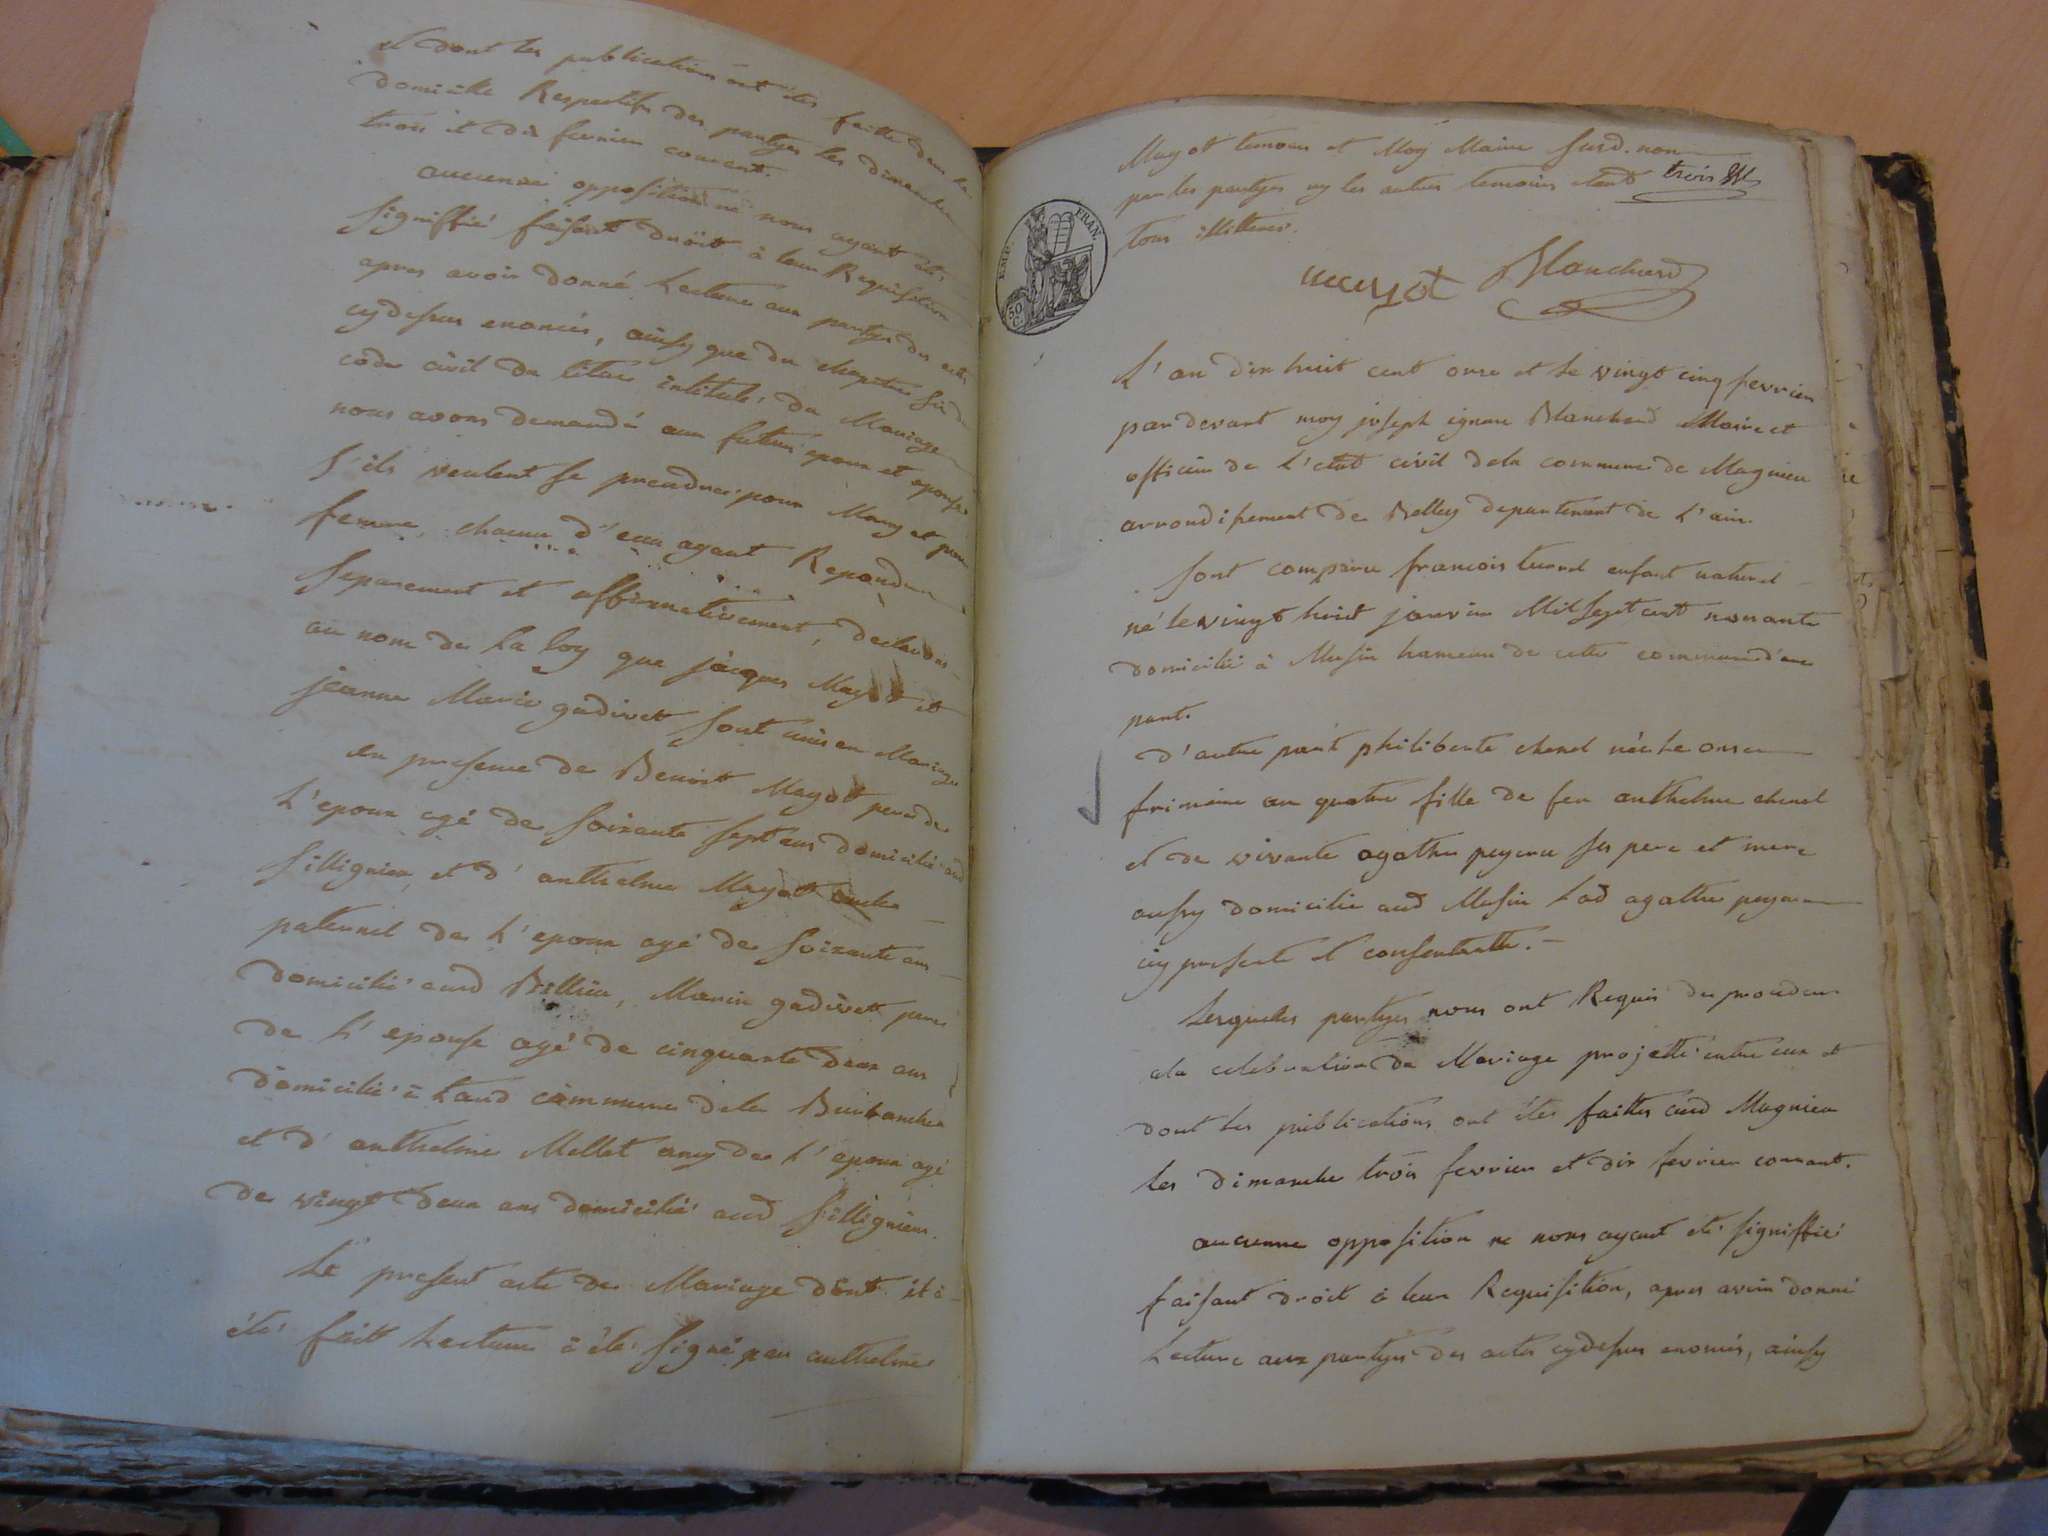 et dont les publications ont étés faitte dans les
domicille Respectifs des partyes les dimanches
trois et dix fevrier courent.
aucunne opposition ne nous ayant été
signiffié faisant droit à leur Requisition
apres avoir donné Lecture aux partyes des actes
cydessus enoncés, ainsy que du chapitre six du
code civil du titre intitulé du Mariage
nous avons demandé aux futurs epoux et epouse
s'ils veulent se prendre pour Mary et pour
femme, chacun d'eux ayant Repondu
separement et affirmativement, declarons
au nom de La loy que jacques Mayot et
jeanne Marie gadivet sont unis en Mariage
en presence de Benoit Mayot pere de
L'epoux agé de soixante sept ans domicilié aud
Sillignieu, et d'anthelme Mayot oncle
paternel de L'epoux agé de soixante ans
domicilié aud Billieu, Marin gadivet pere
de L'epouse agé de cinquante deux ans
domicilié à Laud commune dela Burbanche
et d'anthelme Mellet amy de L'epoux agé
de vingt deux ans domicilié aud Sillignieu.
Le present acte de Mariage dont il a
été fait Lecture à été signé par anthelme
Mayot temoin et Moy Maire susd. non
par les partyes ny les autres temoins etant
trois
tous illitteres.
EMP. FRAN.
50 C.
mayot Blanchard
L'an dix huit cent onze et le vingt cinq fevrier
pardevant moy joseph ignace Blanchard Maire et
officier de L'etat civil dela commune de Magnieu
arrondissement de Belley departement de L'ain.
Sont comparu francois turrel enfant naturel
né le vingt huit janvier Mil sept cent nonante
domicilié à Musin hameau de cette commune d'une
part.
D'autre part philiberte chenel née le onze
frimaire an quatre fille de feu anthelme chenel
et de vivante agathe peyenu ses pere et mere
aussy domicilié aud Musin Lad agathe
icy presente et consentente.
Lesquelles partyes nous ont Requis de proceder
ala celebration du Mariage projetté entre eux et
dont les publications ont étés faittes aud Magnieu
les dimanche trois fevrier et dix fevrier courant.
aucunne opposition ne nous ayant été signiffié
faisant droit à leur Requisition, apres avoir donné
Lecture aux partyes des actes cydessus enoncés, ainsy